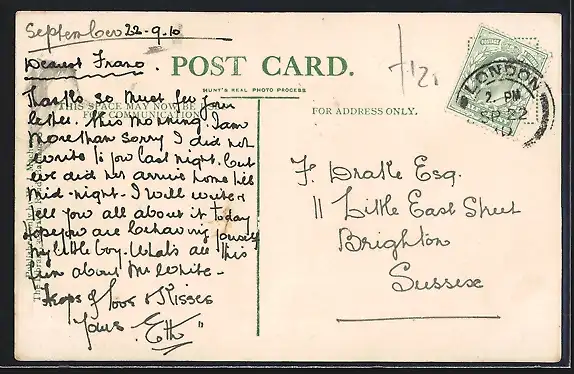 September 22-9-10
Dearest Frank.
POST CARD.
HUNT'S REAL PHOTO PROCESS
THIS SPACE MAY NOW BE USED
FOR COMMUNICATION
FOR ADDRESS ONLY.
Thanks so must for your
letter. this morning. I am
more than sorry I did not
write to you last night. but
we did not arrive home till
mid-night. I will write &
tell you all about it today
hope you are behaving yourself
my little boy. What's all this
about Mr White -
Heaps of love & Kisses
Yours Eth"
LONDON
2. PM
SP 22
10
F. Drake Esq.
11 Little East Street
Brighton
Sussex